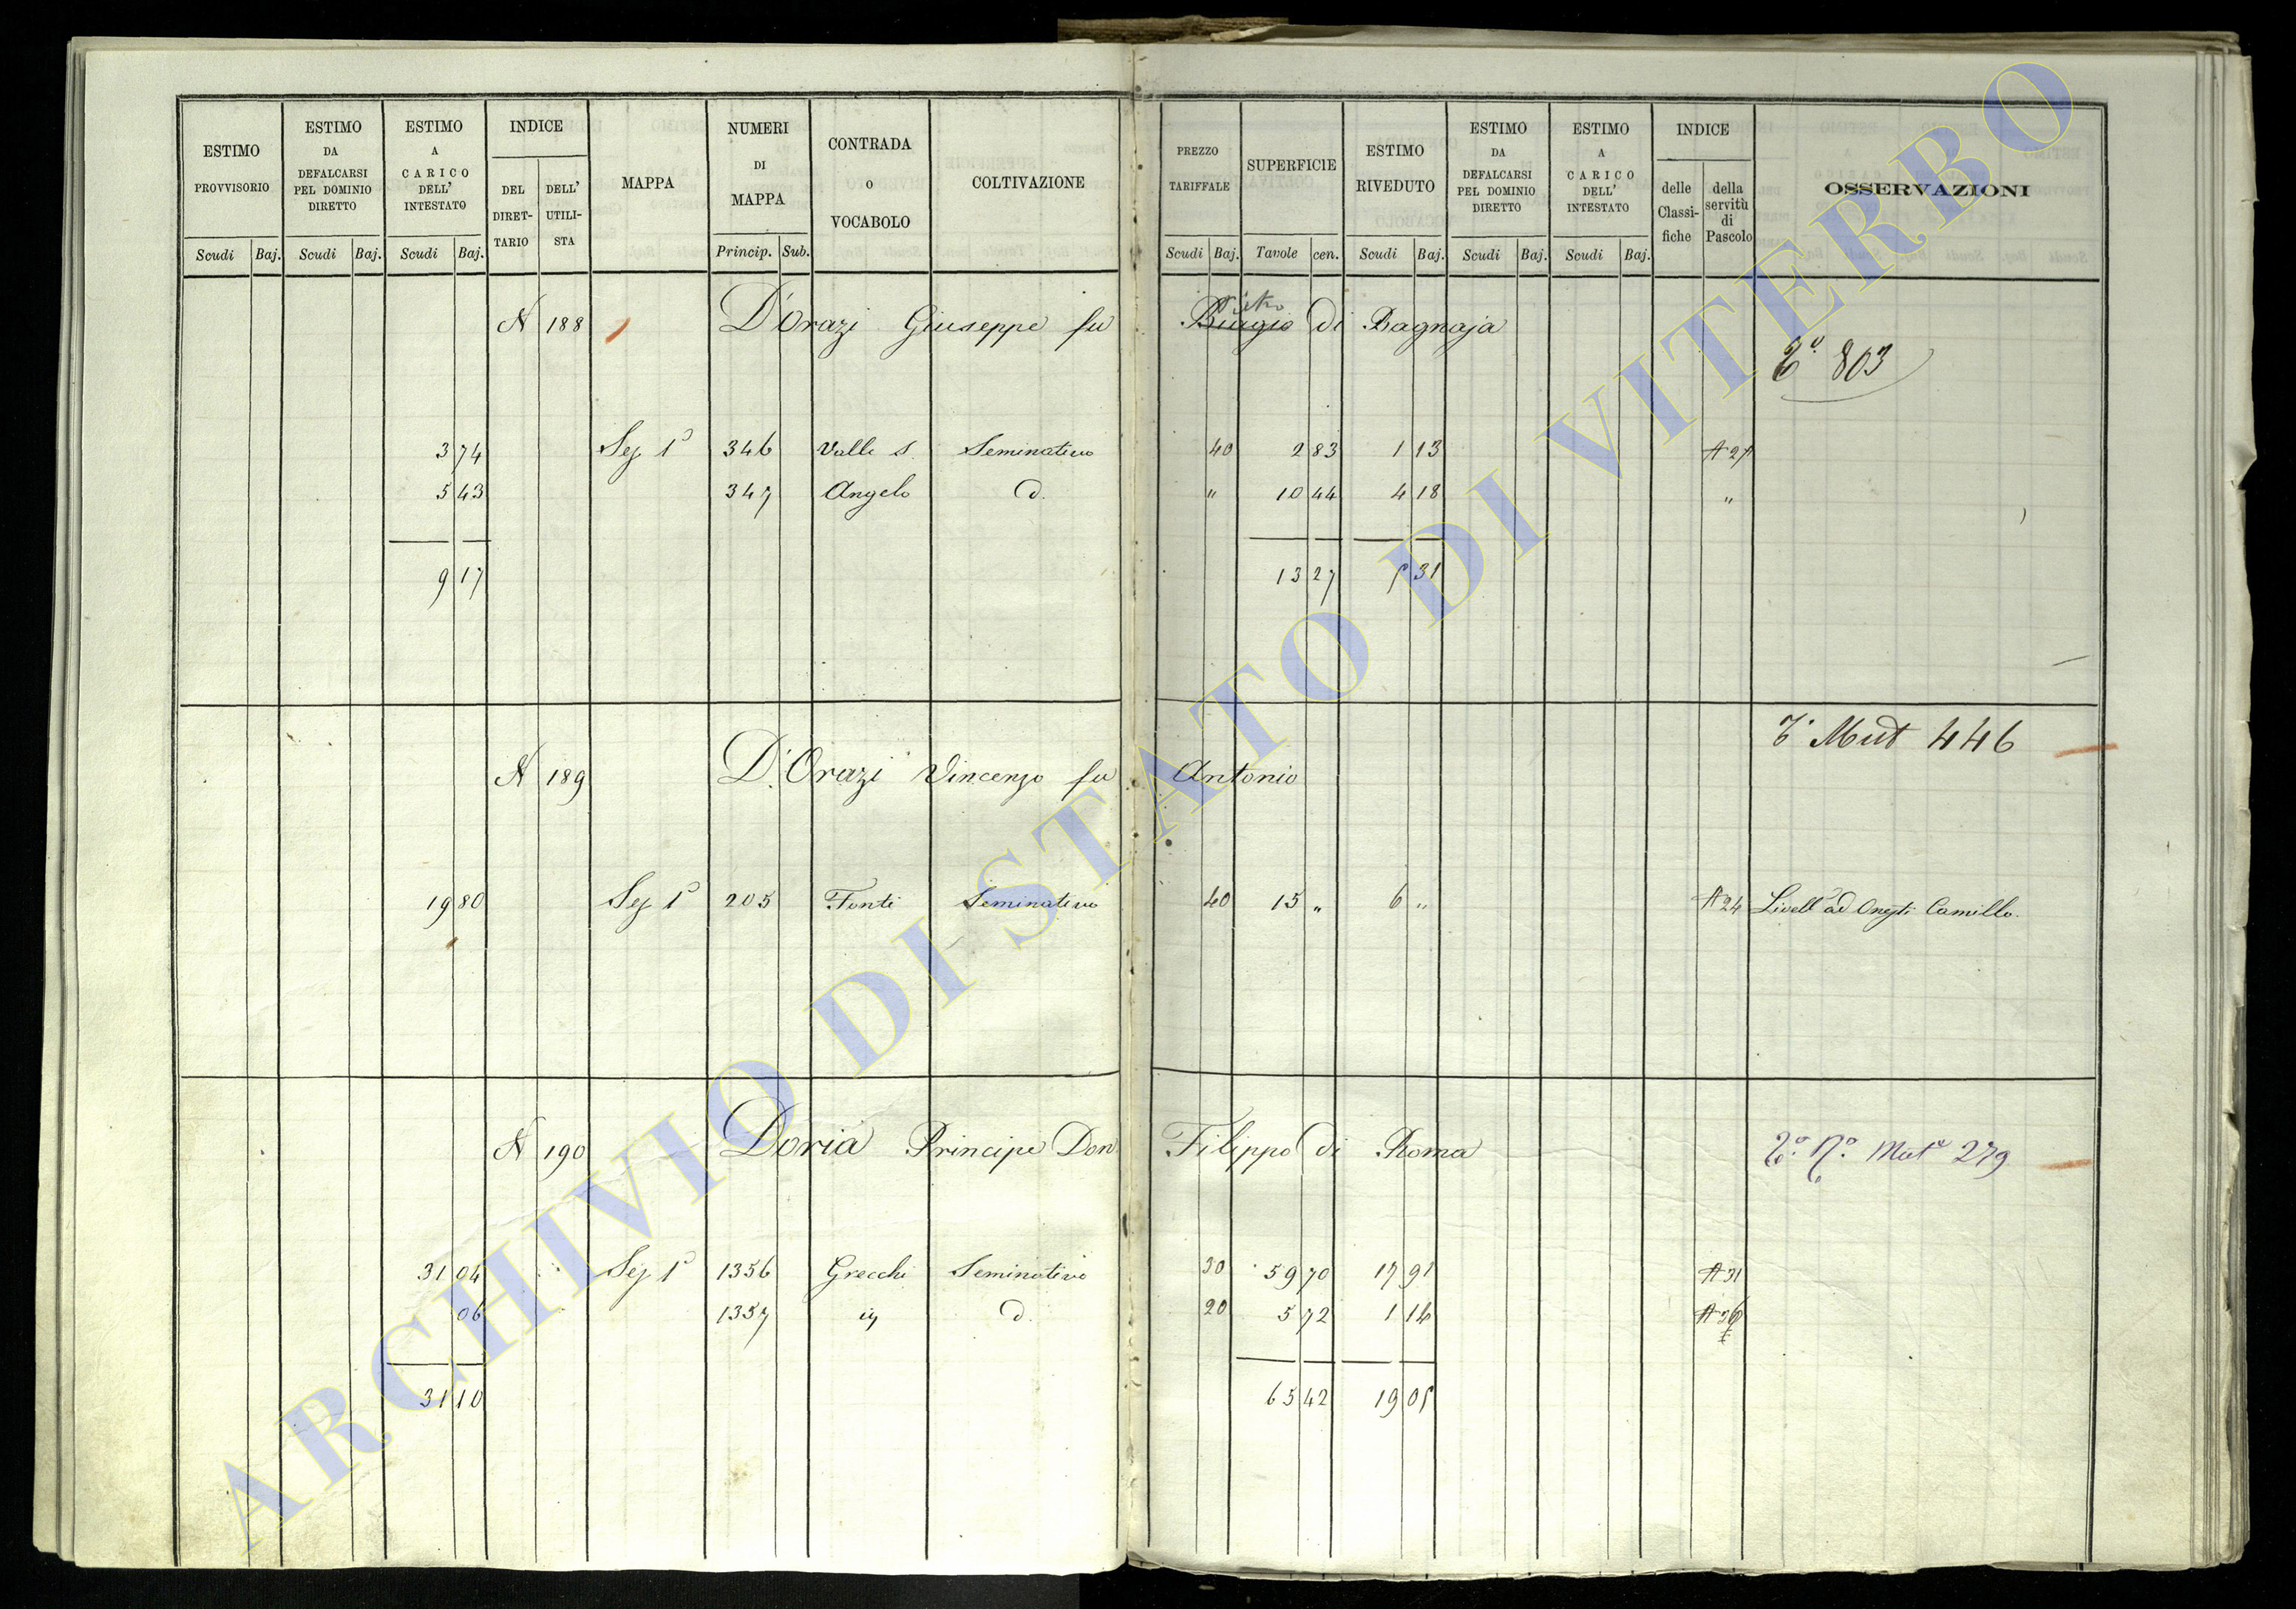 ESTIMO PROVVISORIO
ESTIMO DA DEFALCARSI PEL DOMINIO DIRETTO
ESTIMO A CARICO DELL' INTESTATO
INDICE
DEL DIRET-TARIO
DELL' UTILI-STA
MAPPA
NUMERI DI MAPPA
CONTRADA O VOCABOLO
COLTIVAZIONE
PREZZO TARIFFALE
SUPERFICIE
ESTIMO RIVEDUTO
ESTIMO DA DEFALCARSI PEL DOMINIO DIRETTO
ESTIMO A CARICO DELL' INTESTATO
INDICE
delle Classi-fiche
della servitù di Pascolo
OSSERVAZIONI
Scudi Baj. Scudi Baj. Scudi Baj. Princip. Sub. Scudi Baj. Tavole cen. Scudi Baj. Scudi Baj. Scudi Baj.
N 188 D'Orazi Giuseppe fu Biagio Pietro di Bagnaja
T.° 803
3 74 Sez 1ª 346 Valle S. Seminativo 40 2 83 1 13
5 43 347 Angelo d. " 10 44 4 18 "
9 17 13 27 5 31
T° Mut 446
N 189 D'Orazi Vincenzo fu Antonio
19 80 Sez 1ª 205 Fonti Seminativo 40 15 " 6 " A 24 Livell° ad Onesti Camillo.
N 190 Doria Principe Don Filippo di Roma
T.° N.° Mut° 279
31 04 Sez 1ª 1356 Grecchi Seminativo 30 59 70 17 91 A 31
06 1357 id. 20 5 72 1 14
31 10 65 42 19 05
ARCHIVIO DI STATO DI VITERBO